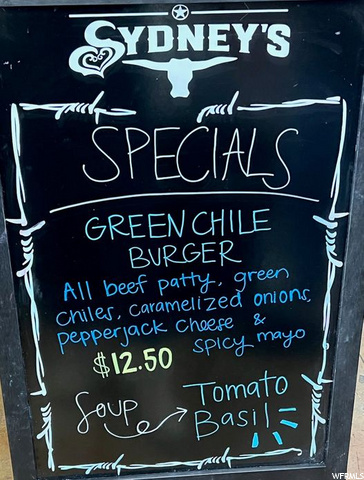 SYDNEY'S
SPECIALS
GREEN CHILE
BURGER
All beef patty, green
chiles, caramelized onions,
pepperjack cheese &
spicy mayo
$12.50
Soup
Tomato
Basil
WFRMLS